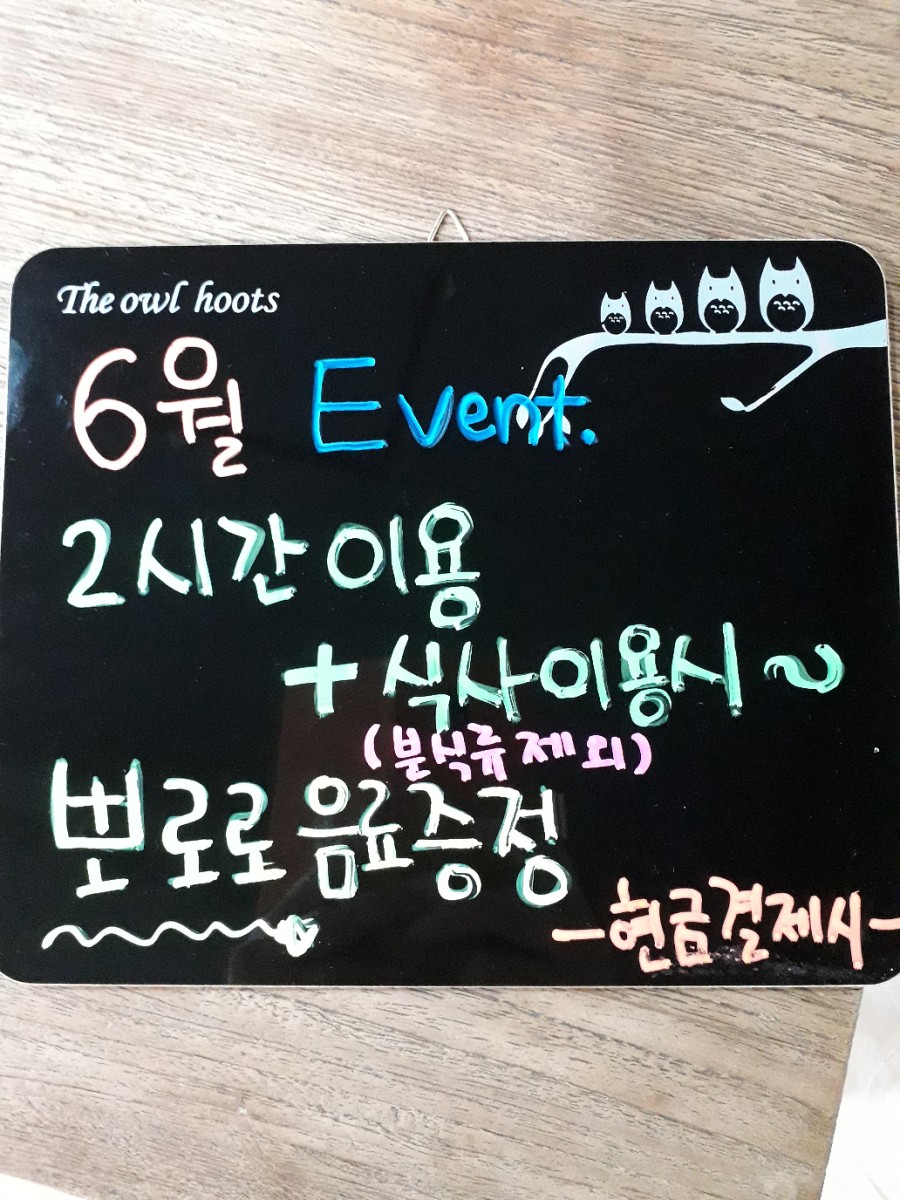 The owl hoots
6월 Event.
2시간 이용
+ 식사이용시~
(분식류 제외)
뽀로로 음료증정
-현금결제시-